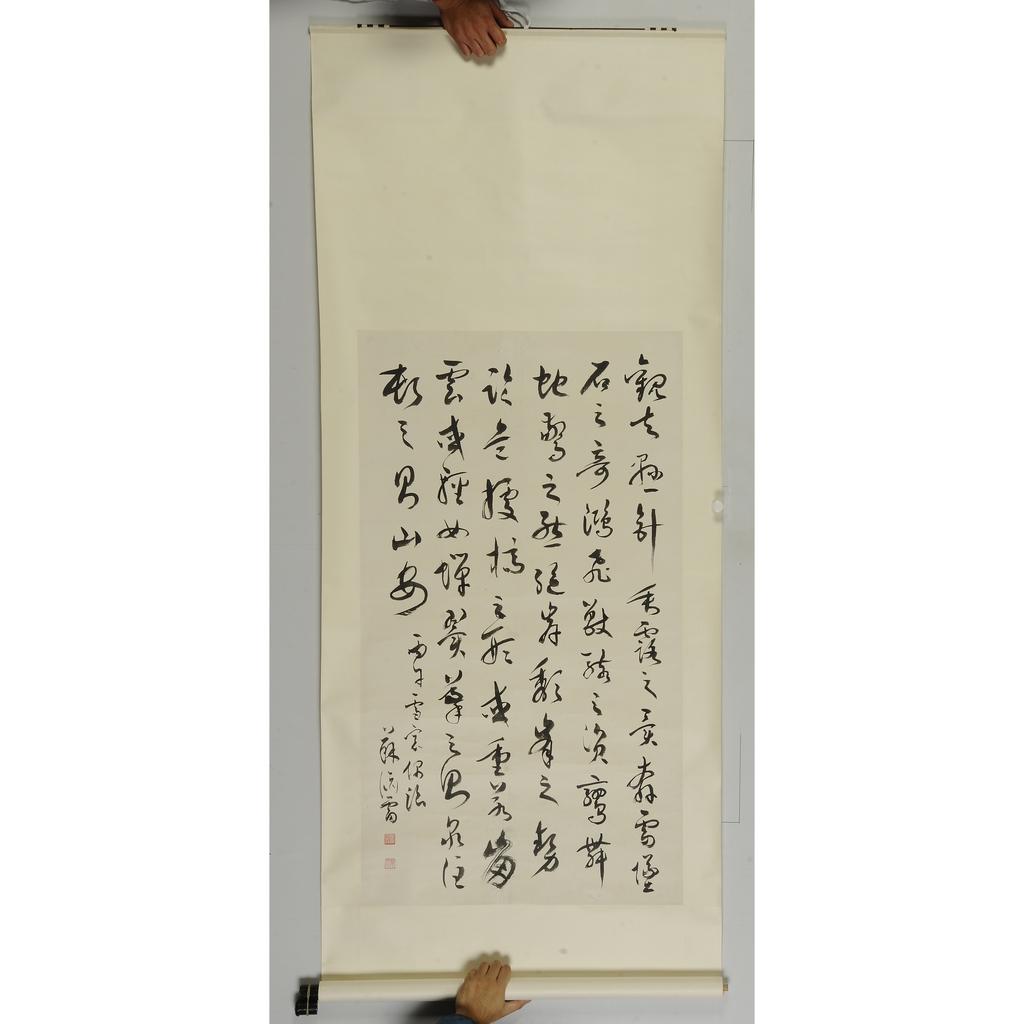 觀夫懸針垂露之異奔雷墜
石之奇鴻飛獸駭之資鸞舞
蛇驚之態絕岸頹峯之勢
臨危據槁之形或重若崩
雲或輕如蟬翼導之則泉注
頓之則山安
丙午雪
蘇淵雷